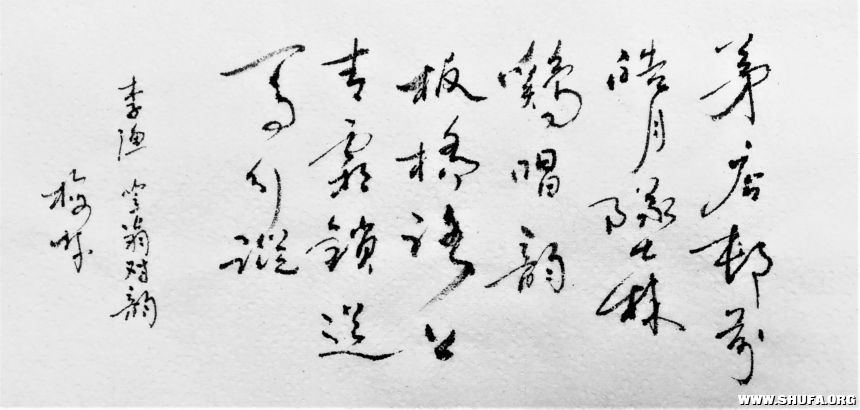 茅店邨前
皓月墜林
鷄唱韵
板橋路上
青霜鎖道
馬行蹤
李漁 笠翁对韵
梅
WWW.SHUFA.ORG